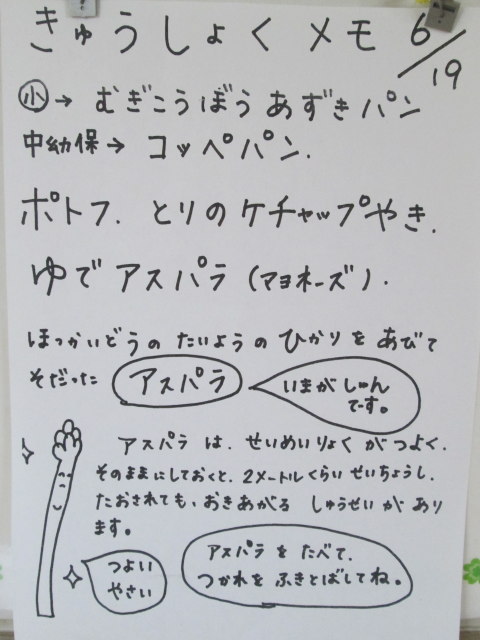 きゅうしょく メモ 6/19
小→ むぎこうぼう あずきパン
中幼保→ コッペパン.
ポトフ. とりのケチャップやき.
ゆで アスパラ (マヨネーズ).
ほっかいどうの たいようの ひかりを あびて
そだった アスパラ いまが しゅん
です。
アスパラ は. せいめいりょく がつよく.
そのままにしておくと. 2メートルくらい せいちょうし.
たおされても. おきあがる しゅうせい が あり
ます。
アスパラ を たべて.
つかれを ふきとばしてね。
つよい
やさい